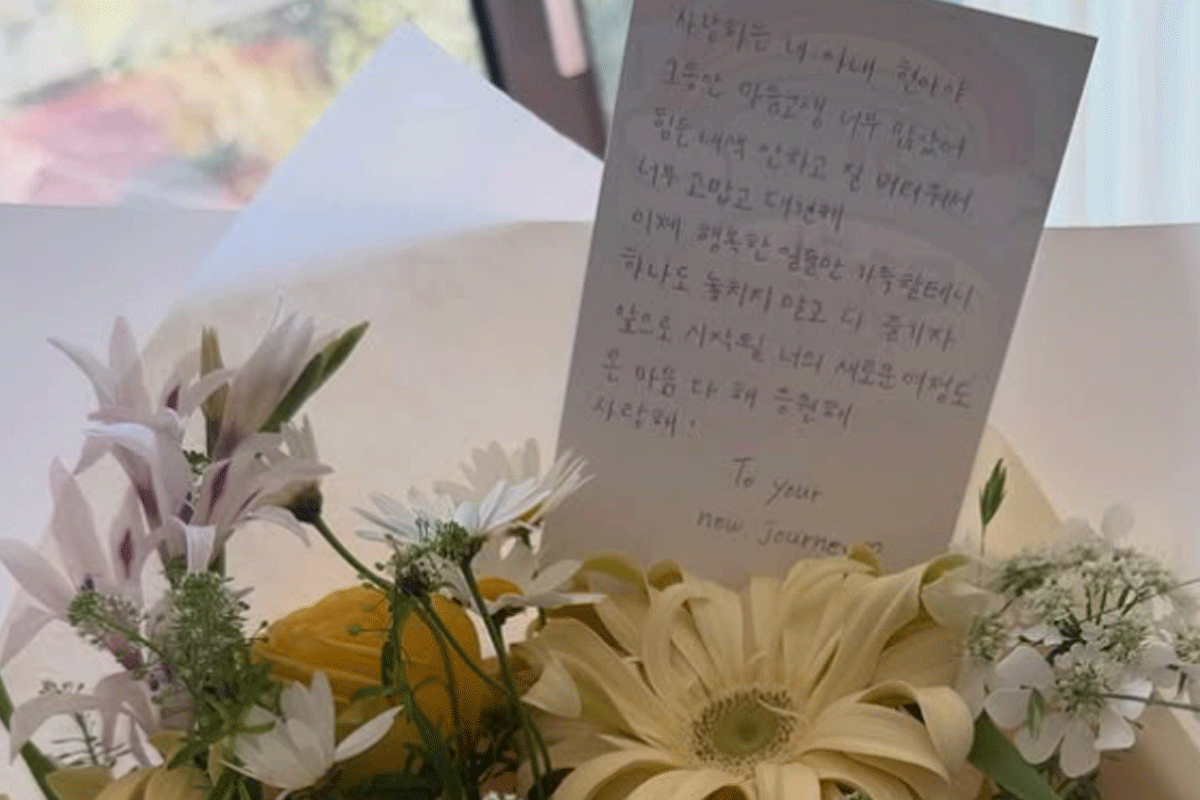 사랑하는 내 아내 현아야
그동안 마음고생 너무 많았어
힘든 내색 안하고 잘 버텨줘서
너무 고맙고 대견해
이제 행복한 일들만 가득할테니
하나도 놓치지 말고 다 즐기자
앞으로 시작될 너의 새로운 여정도
온 마음 다 해 응원해
사랑해.
To your
new journey♡